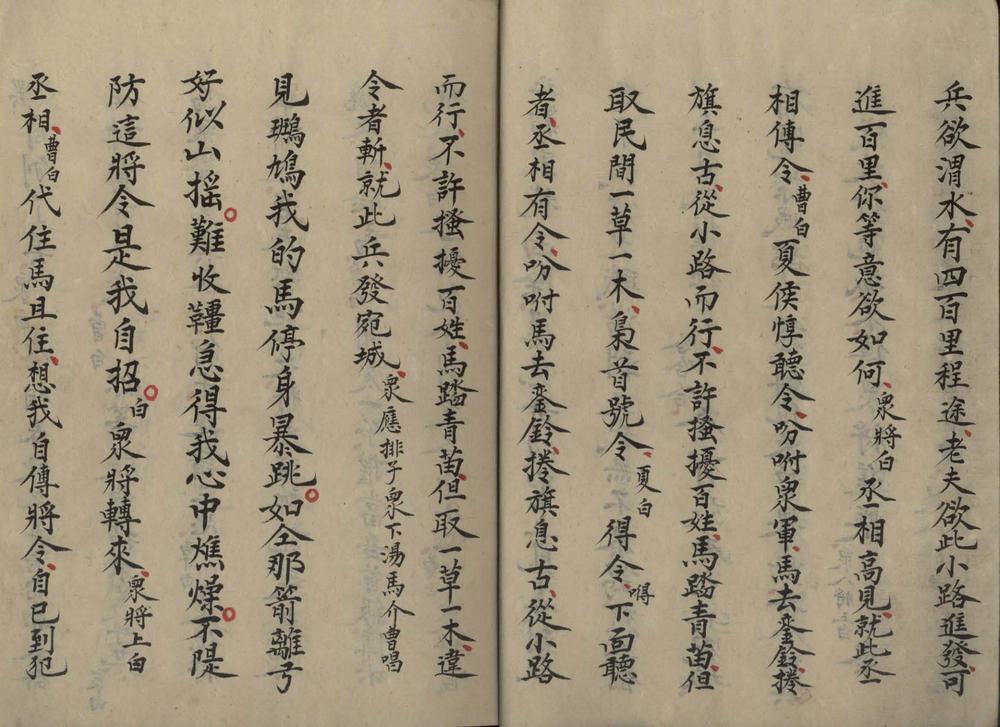 兵欲渭水、有四百里程途、老夫欲此小路進發、可
進百里、你等意欲如何、衆將白丞相高見、就此丞
相傳令、曹白夏侯惇聽令、吩咐衆軍、馬去銮鈴、捲
旗息古、從小路而行、不許搔擾百姓、馬踏青苗、但
取民間一草一木、梟首號令、夏白得令、嘚下面聽
者、丞相有令、吩咐馬去銮鈴、捲旗息古、從小路
而行、不許搔擾百姓、馬踏青苗、但取一草一木、違
令者斬、就此兵發宛城、衆應排子衆下湯馬介曹唱
見鵰鳩我的馬停身暴跳。如仝那箭離于
好似山搖。難收韁急得我心中燋燥。不隄
防這將令是我自招。白衆將轉來、衆將上白
丞相、曹白代住馬且住、想我自傳將令、自已到犯